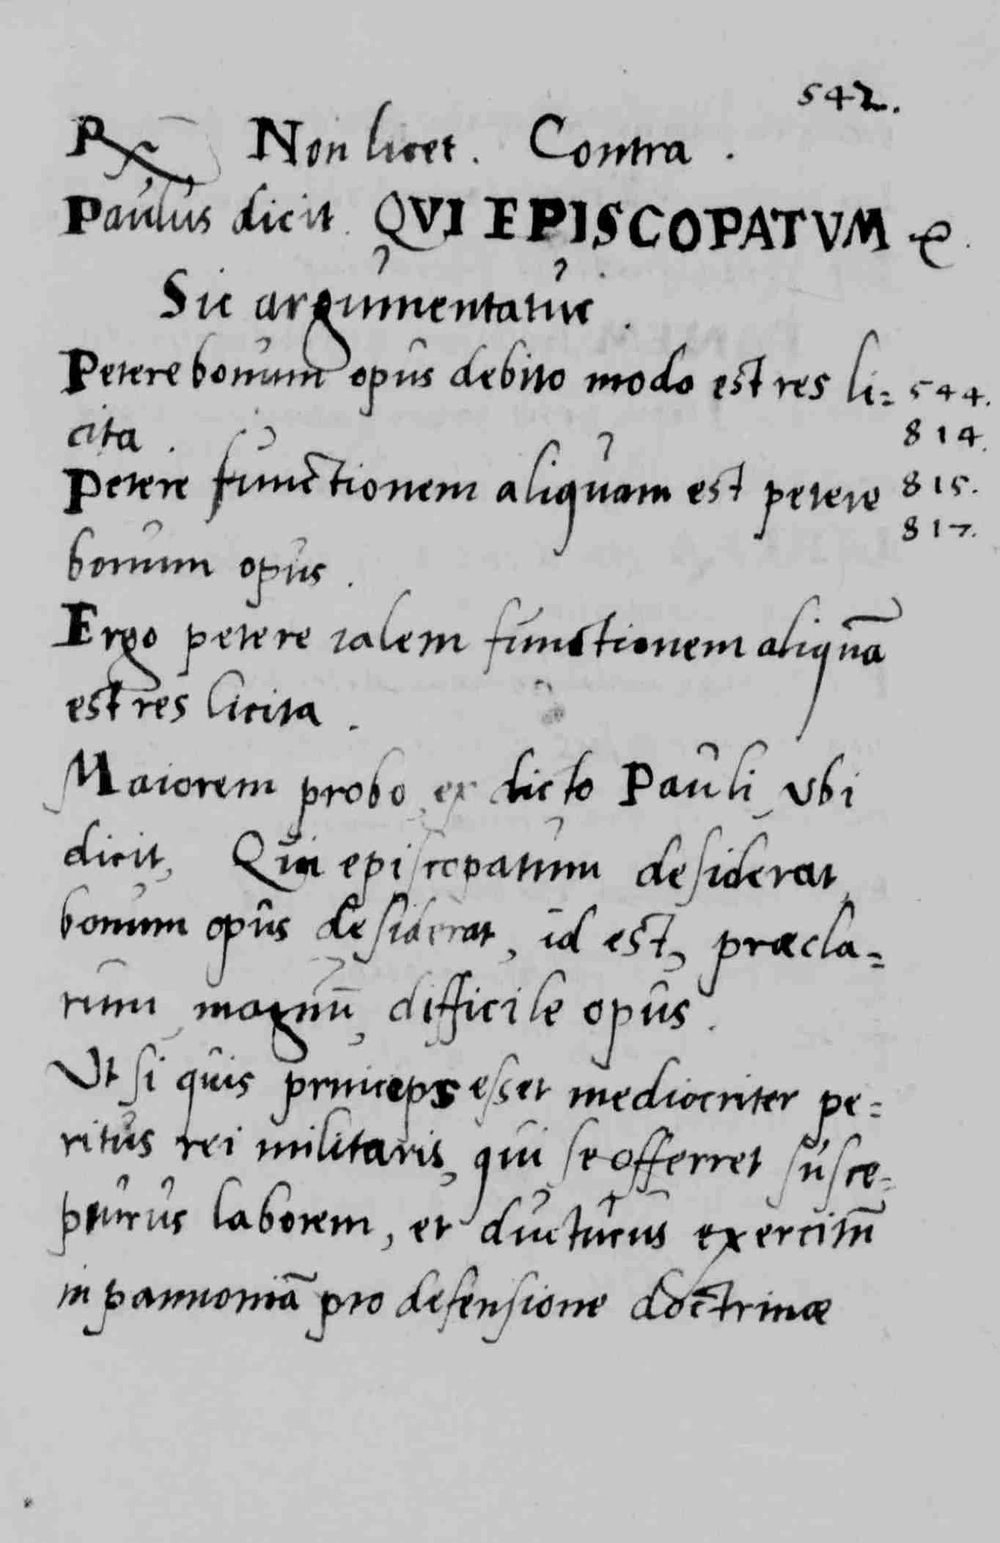 542.
Rx Non licet. Contra.
Paulus dicit. QVI EPISCOPATVM &.
Sic argumentatur.
Petere bonum opus debito modo est res li= 544.
cita. 814.
Petere functionem aliquam est petere 815.
817.
bonum opus.
Ergo petere talem functionem aliquā
est res licita.
Maiorem probo ex dicto Pauli, vbi
dicit, Qui episcopatum desiderat,
bonum opus desiderat, id est, præcla=
rum, magnū, difficile opus.
Vt si quis princeps esset mediocriter pe=
ritus rei militaris, qui se offerret susce=
pturus laborem, et ducturus exercitū
in pannoniā pro defensione doctrinæ